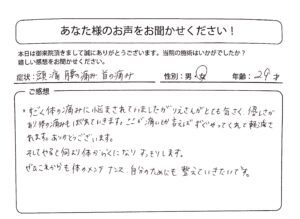 あなた様のお声をお聞かせください！
本日は御来院頂きまして誠にありがとうございます。当院の施術はいかがでしたか？
嬉しい感想をお聞かせください。
症状：頭痛 腰の痛み 首の痛み 性別：男・女 年齢：29才
ご感想
・すごく体の痛みに悩まされていましたがりえさんがとても気さく、優しさが
あり体の痛みも ほぐれていきます。ここが痛いとか言えばすぐやってくれて軽減さ
れます。ありがとうございます。
そしてやると何より体がらくになり すっきりします。
ぜひこれからも体のメンテナンス、自分のためにも 整えていきたいです。